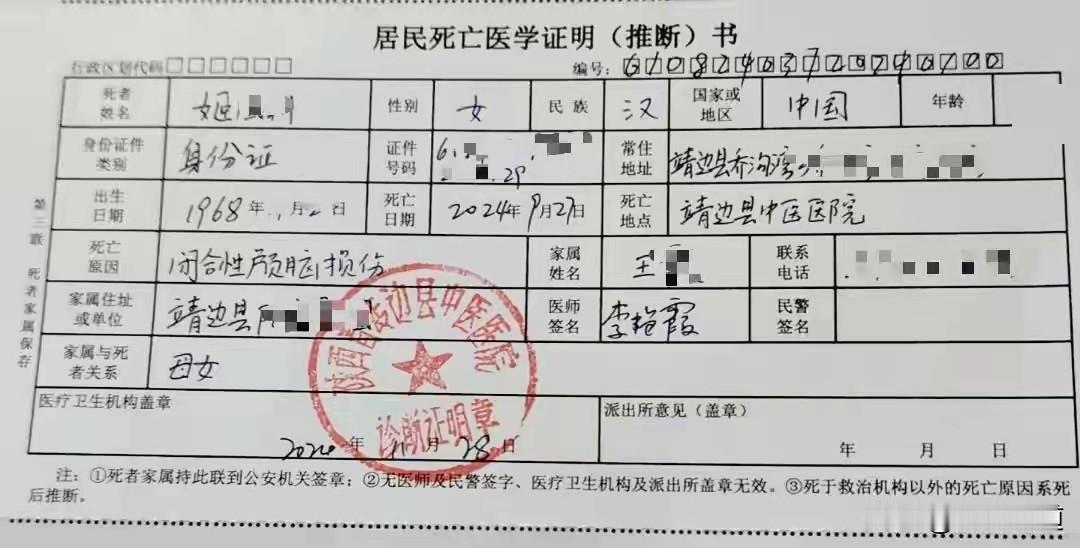 居民死亡医学证明（推断）书
行政区划代码□□□□□□ 编号：
死者姓名 姬 性别 女 民族 汉 国家或地区 中国 年龄
身份证件类别 身份证 证件号码 常住地址 靖边县乔沟湾
出生日期 1968年 日 死亡日期 2024年9月27日 死亡地点 靖边县中医医院
死亡原因 闭合性颅脑损伤 家属姓名 王 联系电话
家属住址或单位 靖边县 医师签名 李艳霞 民警签名
家属与死者关系 母女
陕西省靖边县中医医院
诊断证明章
医疗卫生机构盖章 派出所意见（盖章）
2024年11月28日 年 月 日
注：①死者家属持此联到公安机关签章；②无医师及民警签字、医疗卫生机构及派出所盖章无效。③死于救治机构以外的死亡原因系死
后推断。
第三联 死者家属保存